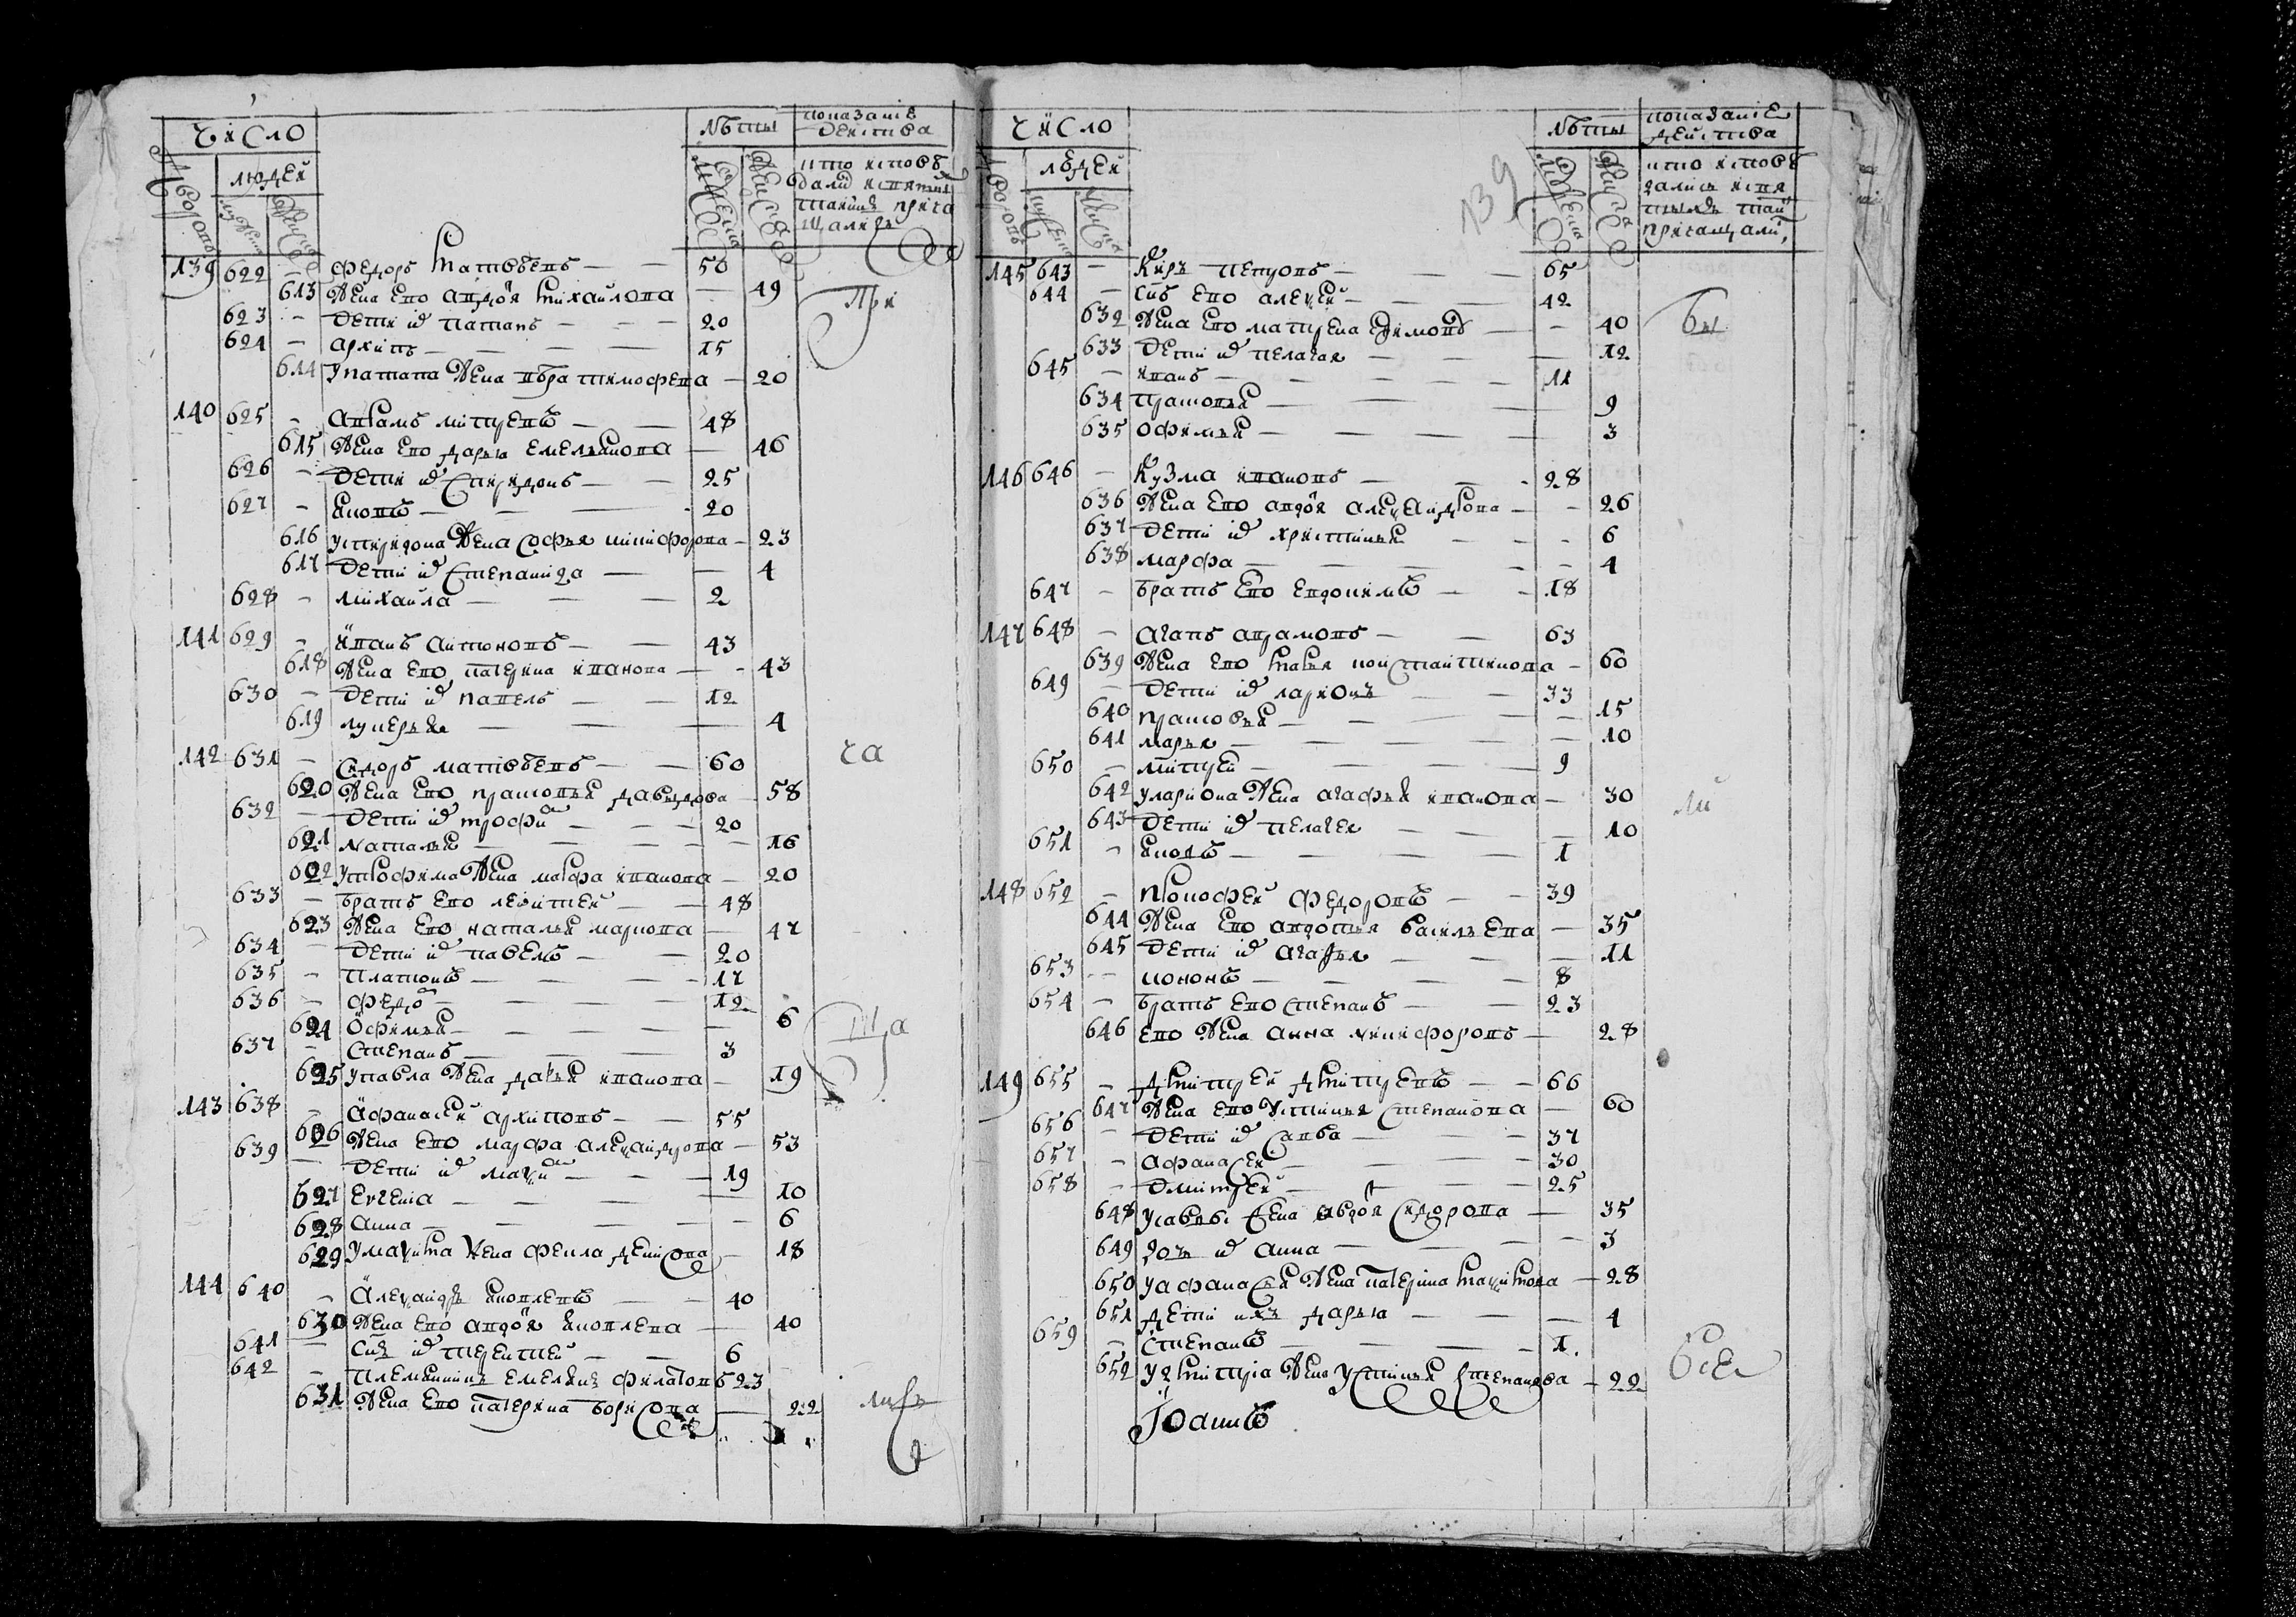 число
людей
лѣты
показание
действа
139 622 – федоръ матвѣевъ – 50
613 жена его авдотя михайлова – 49
623 – дети их потапъ – 20
624 – архипъ – 15
614 у потапа жена вѣра тимофеева – 20
140 625 – аврамъ митревъ – 48
615 жена его дарья емельянова – 46
626 – дети их спиридонъ – 25
627 – яковъ – 20
616 у спиридона жена софья никифорова – 23
617 дети их степанида – 4
628 – михайла – 2
141 629 – иванъ антоновъ – 43
618 жена его катерина иванова – 43
630 – дети их павелъ – 12
619 лукерья – 4
142 631 – сидоръ матвѣевъ – 60
620 жена его прасковья давыдова – 58
632 – дети их трофим – 20
621 наталья – 16
622 у трофима жена марфа иванова – 20
633 – братъ его леонтей – 48
623 жена его наталья маркова – 47
634 – дети их павелъ – 20
635 – платонъ – 17
636 – федор – 12
624 офимья – 6
637 – степанъ – 3
625 у павла жена дарья иванова – 19
143 638 – афанасей архиповъ – 55
626 жена его марфа александрова – 53
639 – дети их максим – 19
627 евгения – 10
628 анна – 6
629 у максима жена фекла денисова – 18
144 640 – александръ яковлевъ – 40
630 жена его авдотя яковлева – 40
641 – сынъ их терентей – 6
642 – племянникъ емелянъ филатовъ 23
631 жена его катерина борисова – 22
При
ча
ща
лись
число
людей
лѣты
показание
действа
139
145 643 – киръ петровъ – 65
644 – сынъ его алексей – 42
632 жена его матрена – 40
633 дети их пелагея – 12
645 – иванъ – 11
634 прасковья – 9
635 офимья – 3
146 646 – кузма ивановъ – 28
636 жена его авдотя александрова – 26
637 дети их христинья – 6
638 марфа – 4
647 – братъ его евдокимъ – 18
147 648 – агапъ аврамовъ – 63
639 жена его марья константинова – 60
649 – дети их ларионъ – 33
640 прасковья – 15
641 марья – 10
650 – митрей – 9
642 у лариона жена агафья иванова – 30
643 дети их пелагея – 10
651 – яковъ – 1
148 652 – прокофей федоровъ – 39
644 жена его авдотья василъева – 35
645 дети их агафья – 11
653 – кононъ – 8
654 – братъ его степанъ – 23
646 его жена анна никифоровъ – 28
149 655 – дмитрей дмитревъ – 66
647 жена его устинья степанова – 60
656 – дети их савва – 37
657 – афанасей – 30
658 – дмитрей – 25
648 у саввы жена авдотя сидорова – 35
649 дочь их анна – 3
650 у афанасья жена катерина максимова – 28
651 дети ихъ дарья – 4
659 – степанъ – 1
652 у дмитрия жена устинья степанова – 22
Іоаннъ
бы
ли
все